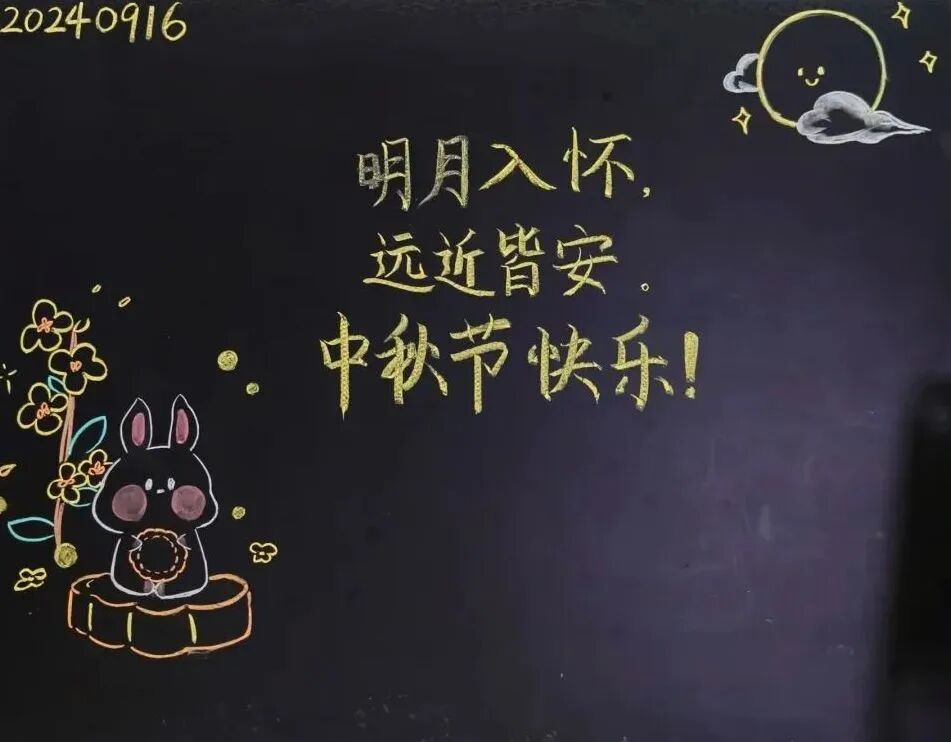 20240916
明月入怀,
远近皆安。
中秋节快乐!